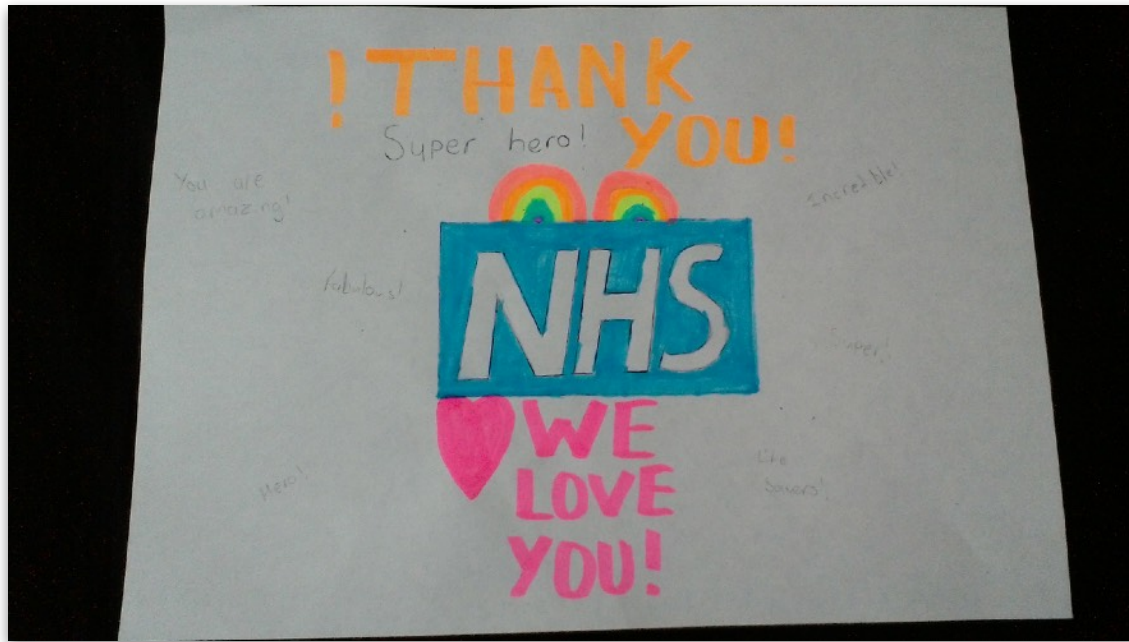 ! THANK
YOU!
Super hero!
You are
amazing!
Incredible!
Fabulous!
NHS
Super!
WE
LOVE
YOU!
Hero!
Life
Savers!